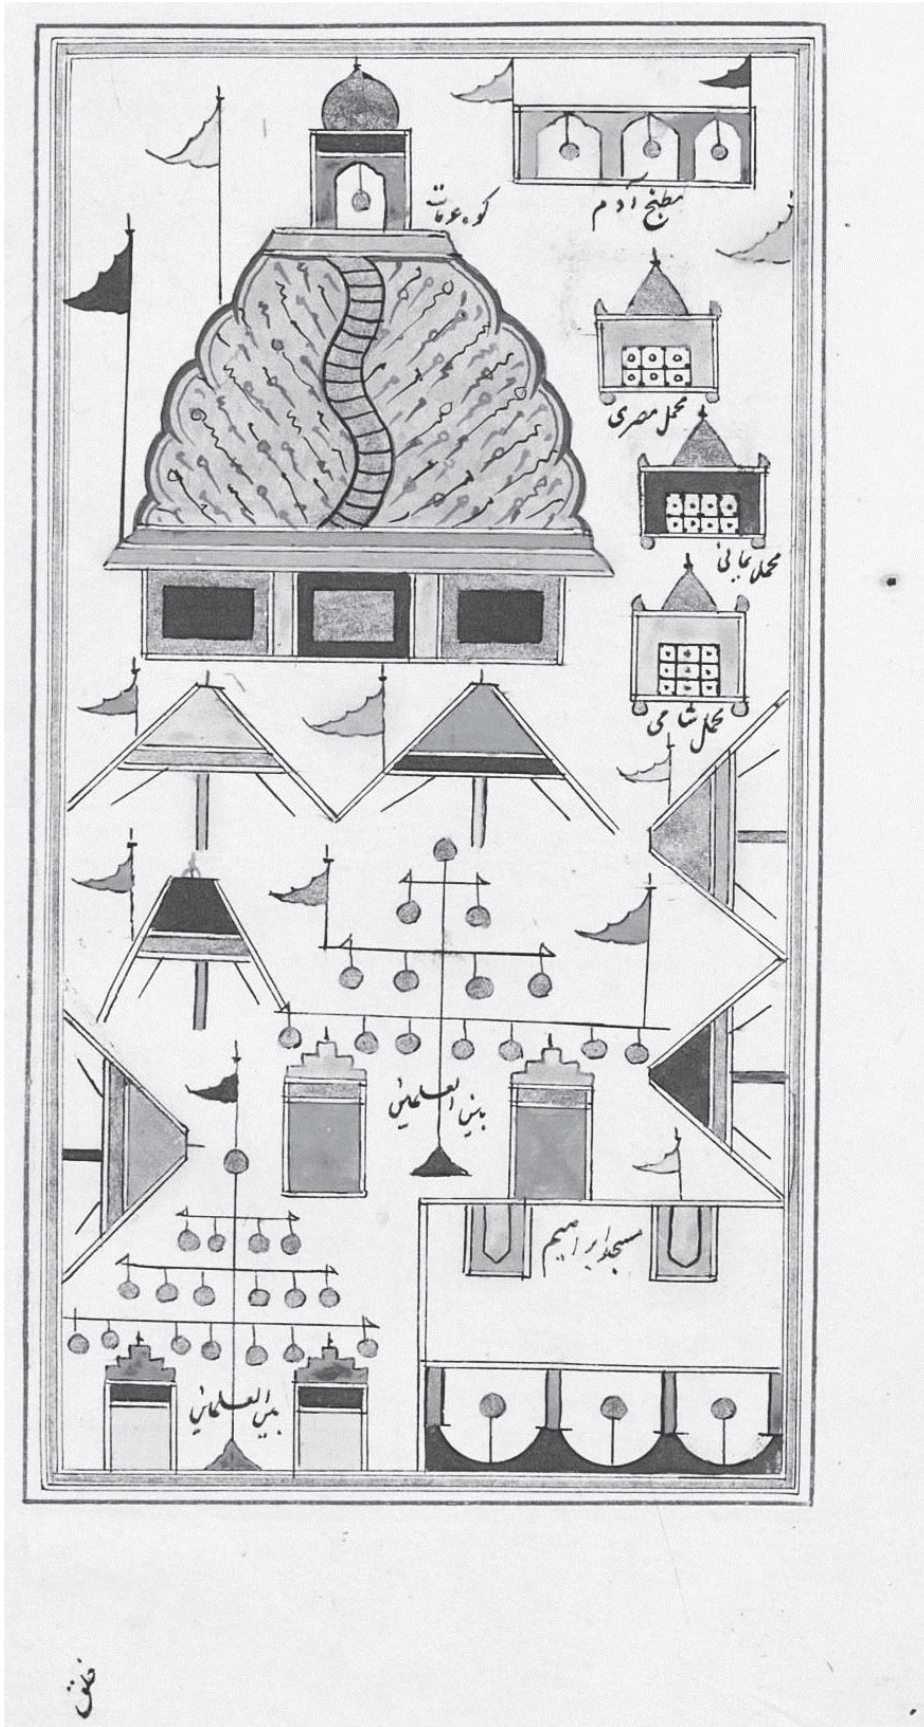 مطبخ آدم
کوه عرفات
محمل مصری
محمل یمانی
محمل شامی
بین العلمین
مسجد ابراهیم
بین العلمین